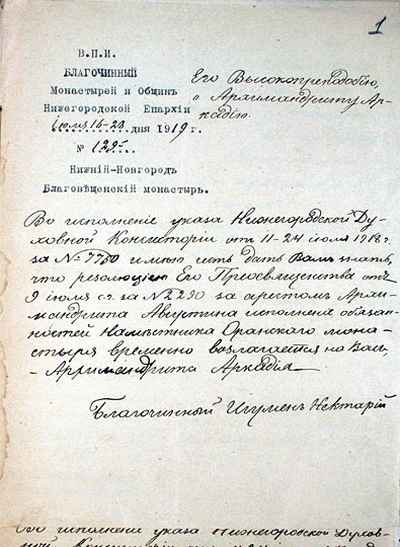 1
В.П.И.
БЛАГОЧИННЫЙ
Монастырей и Общинъ
Нижегородской Епархіи
іюля 16-23 дня 1919 г.
№ 125
Нижній-Новгородъ
Благовѣщенскій монастырь.
Его Высокопреподобію,
о Архимандриту Ар-
кадію.
Во исполненіе указа Нижегородской Ду-
ховной Консисторіи отъ 11-24 іюля 1918 г.
за № 7750 имѣю честь дать Вамъ знать,
что резолюціею Его Преосвященства отъ
9 іюля с.г. за № 2290 за арестомъ Архи-
мандрита Августина исполненіе обязан-
ностей Намѣстника Оранскаго мона-
стыря временно возлагается на Васъ
- Архимандрита Аркадія
Благочинный Игуменъ Нектарій
Во исполненіе указа Нижегородской Духов-
ной Консисторіи